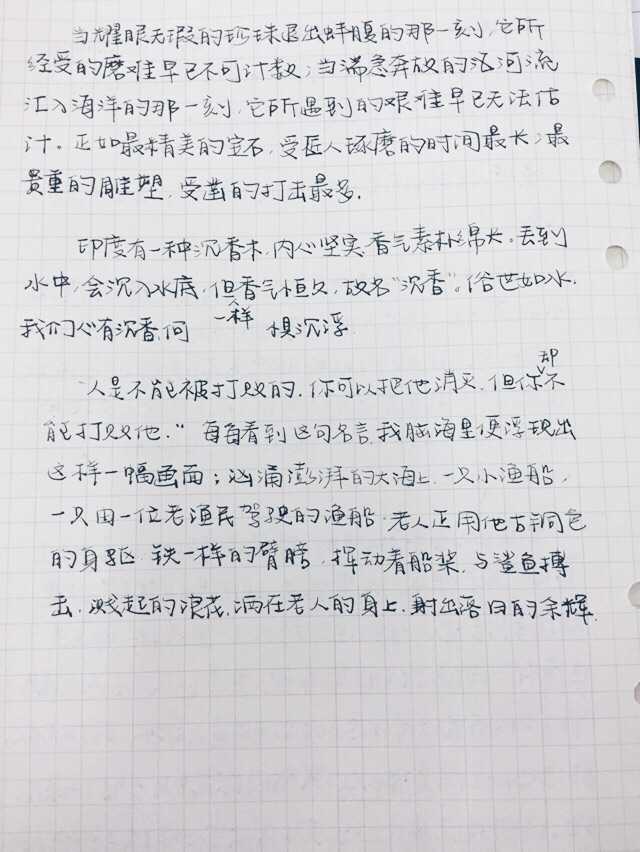 当耀眼无瑕的珍珠退出蚌腹的那一刻,它所
经受的磨难早已不可计数;当湍急奔放的江河流
汇入海洋的那一刻,它所遇到的艰难早已无法估
计。正如最精美的宝石,受匠人琢磨的时间最长;最
贵重的雕塑,受凿的打击最多.
印度有一种沉香木,内心坚实,香气素朴绵长。丢到
水中,会沉入水底,但香气恒久,故名“沉香”。俗世如水.
我们心有沉香,何 一样 惧沉浮
“人是不能被打败的.你可以把他消灭.但你却不
能打败他.”每每看到这句名言,我脑海里便浮现出
这样一幅画面;汹涌澎湃的大海上.一只小渔船,
一只由一位老渔民驾驶的渔船.老人正用他古铜色
的身躯.铁一样的臂膀.挥动着船桨,与鲨鱼搏
击.溅起的浪花,洒在老人的身上.射出落日的余辉.